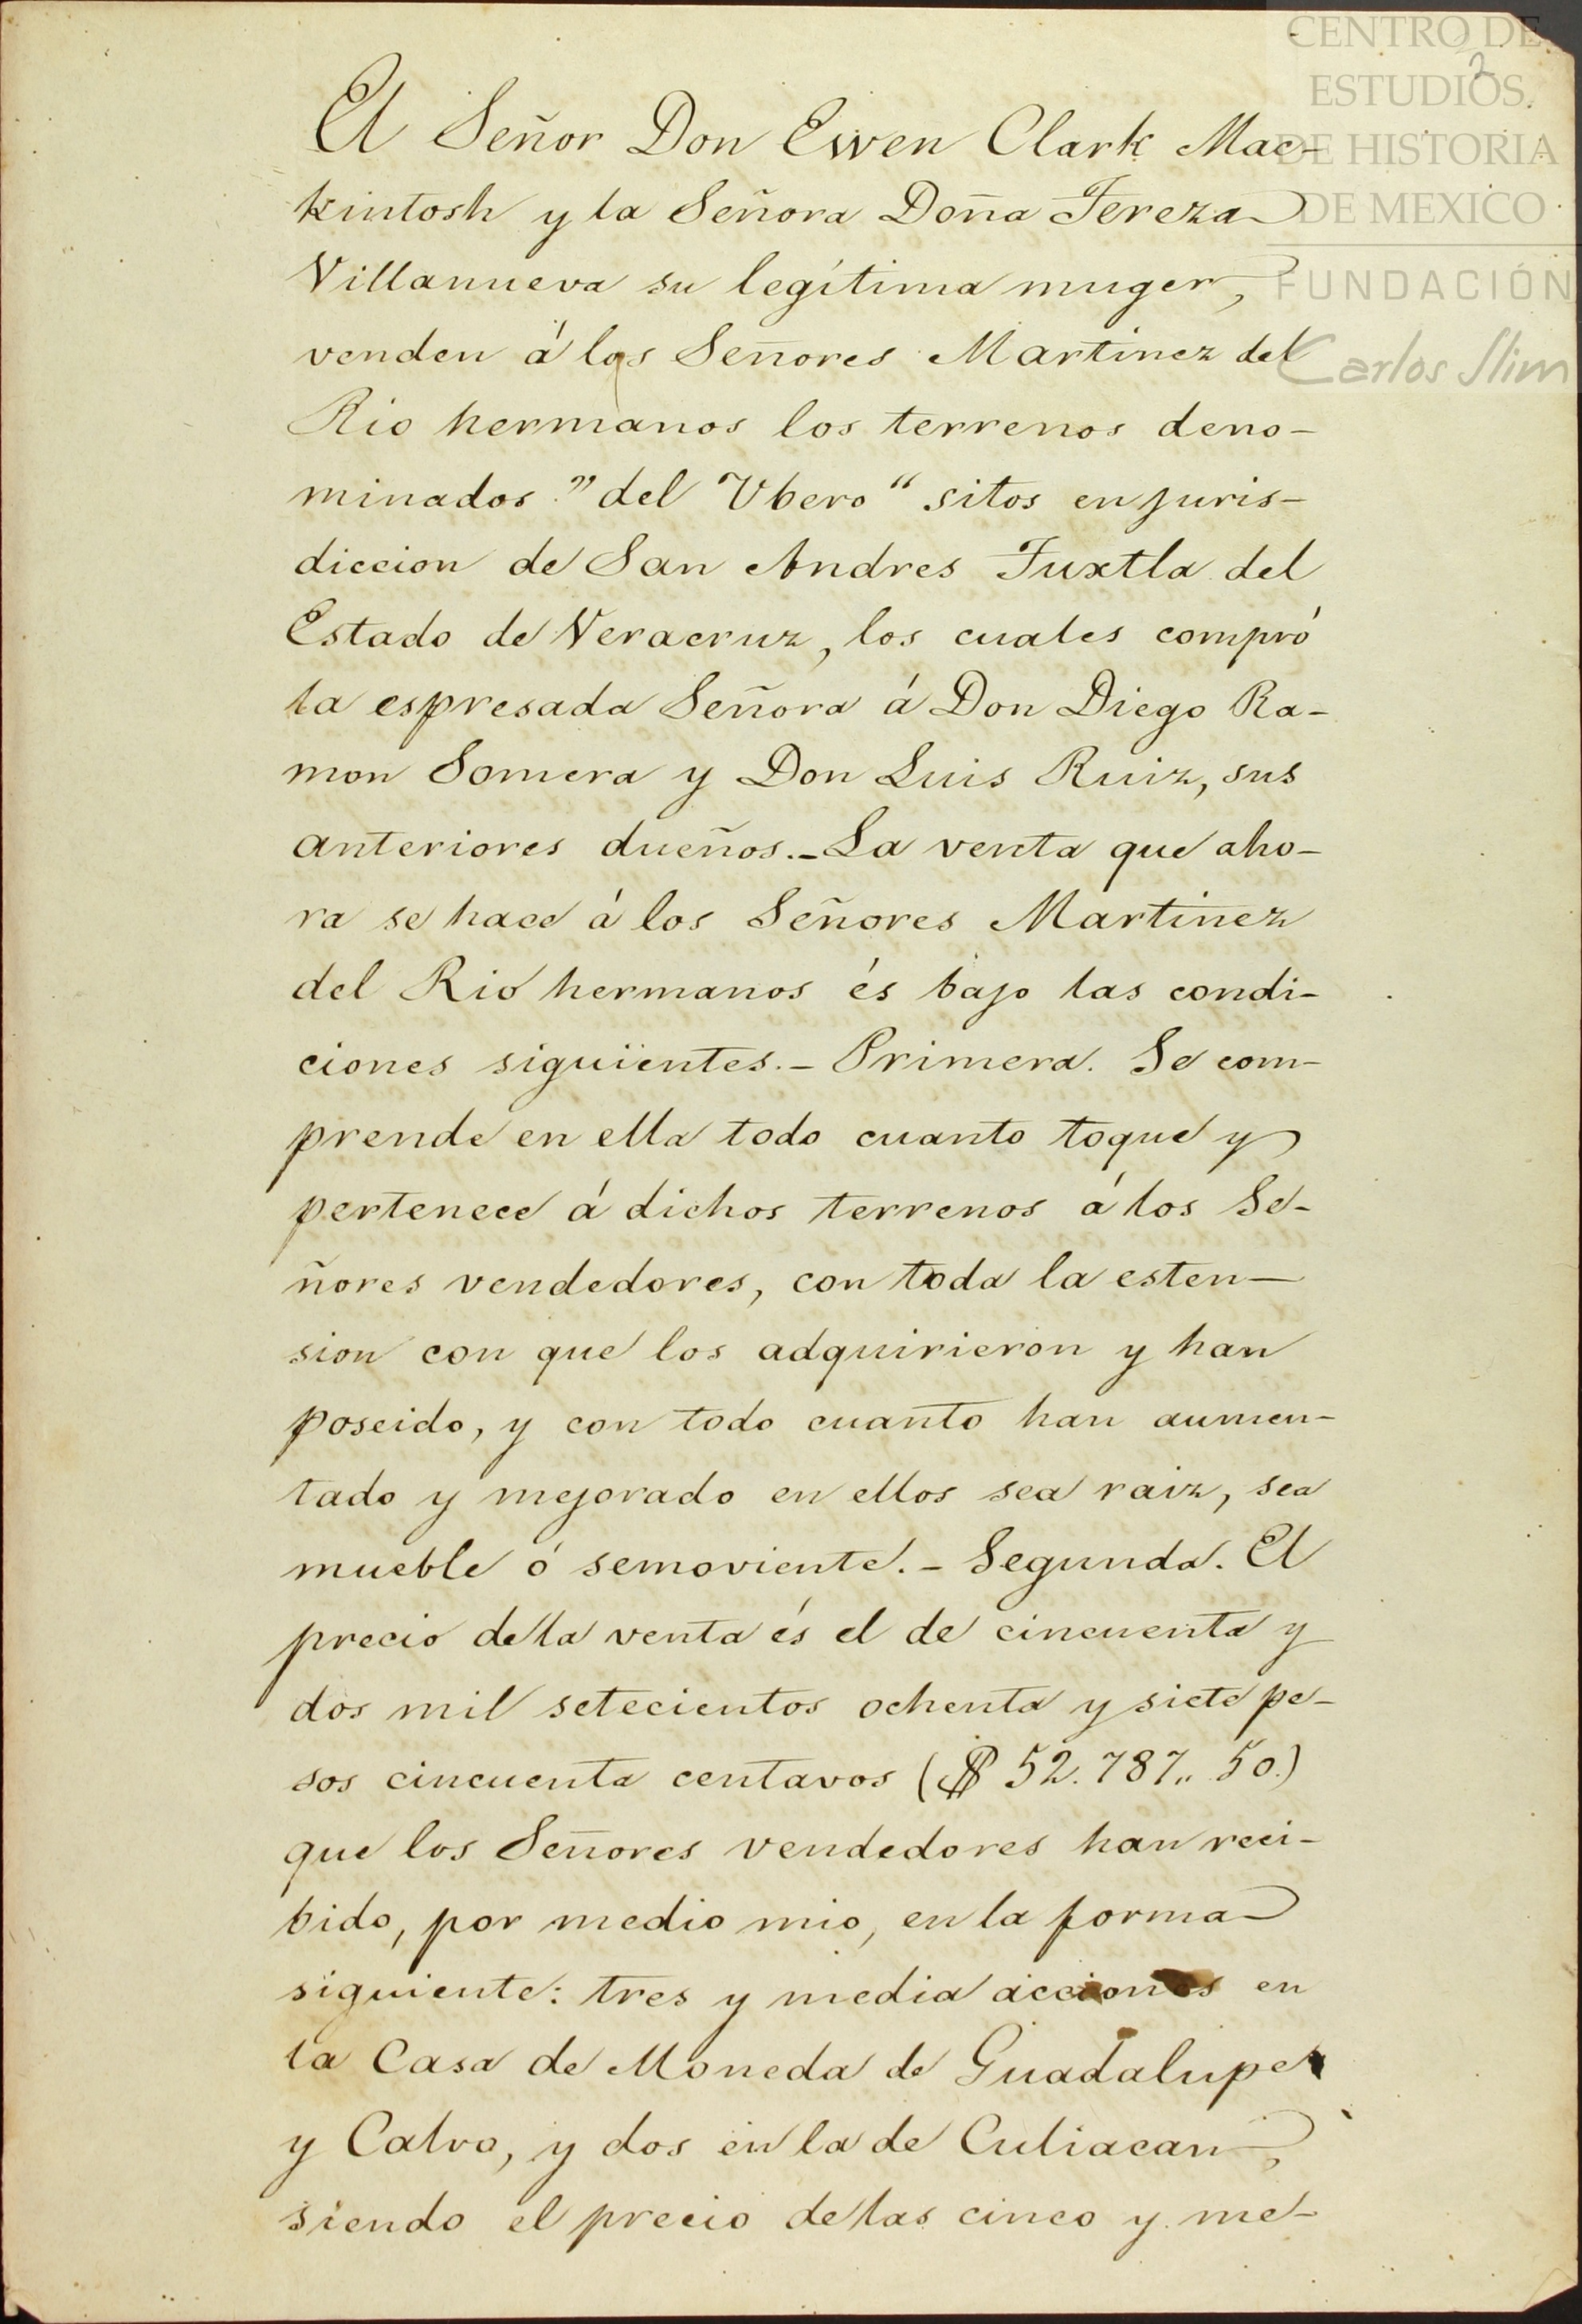 CENTRO DE
ESTUDIOS
DE HISTORIA
DE MEXICO
FUNDACIÓN
Carlos Slim
2
El Señor Don Ewen Clark Mac-
kintosh y la Señora Doña Tereza
Villanueva su legítima muger,
venden á los Señores Martinez del
Rio hermanos los terrenos deno-
minados "del Ubero" sitos en juris-
diccion de San Andres Tuxtla del
Estado de Veracruz, los cuales compró
la espresada Señora á Don Diego Ra-
mon Somera y Don Luis Ruiz, sus
anteriores dueños.- La venta que aho-
ra se hace á los Señores Martinez
del Rio hermanos és bajo las condi-
ciones siguientes.- Primera. Se com-
prende en ella todo cuanto toque y
pertenece á dichos terrenos á los Se-
ñores vendedores, con toda la esten-
sion con que los adquirieron y han
poseido, y con todo cuanto han aumen-
tado y mejorado en ellos sea raiz, sea
mueble ó semoviente.- Segunda. El
precio de la venta és el de cincuenta y
dos mil setecientos ochenta y siete pe-
sos cincuenta centavos ($ 52.787,, 50.)
que los Señores vendedores han reci-
bido, por medio mio, en la forma
siguiente: tres y media acciones en
la Casa de Moneda de Guadalupe
y Calvo, y dos en la de Culiacan,
siendo el precio de las cinco y me-